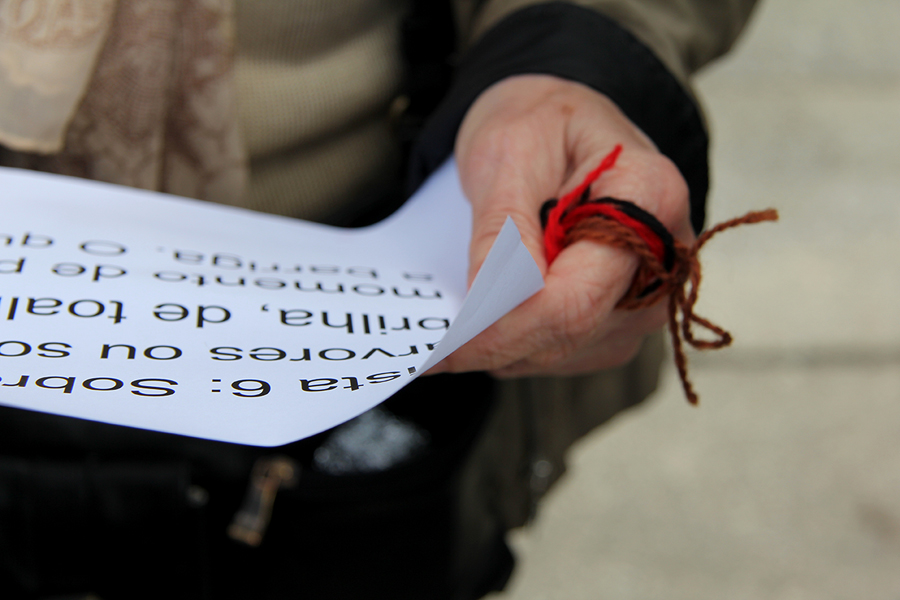 ista 6: Sobra
rvores ou so
brilha, de toal
momento de p
a barriga. O qu